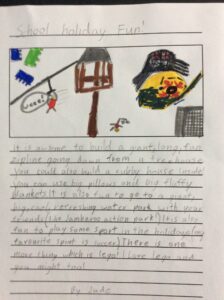 School holiday Fun!
weee!
It is awsome to build a giant, long, fun
zipline going down from a tree house
You could also build a cubby house inside
you can use big pillows and big fluffy
blankets. It is also fun to go to a giant,
big, cool, refreshing water park with your
friends (like Jamberoo action park). It is also
fun to play some sport in the holidays (my
favourite sport is soccer). There is one
more thing which is lego! I love lego and
you might too!
By Jude